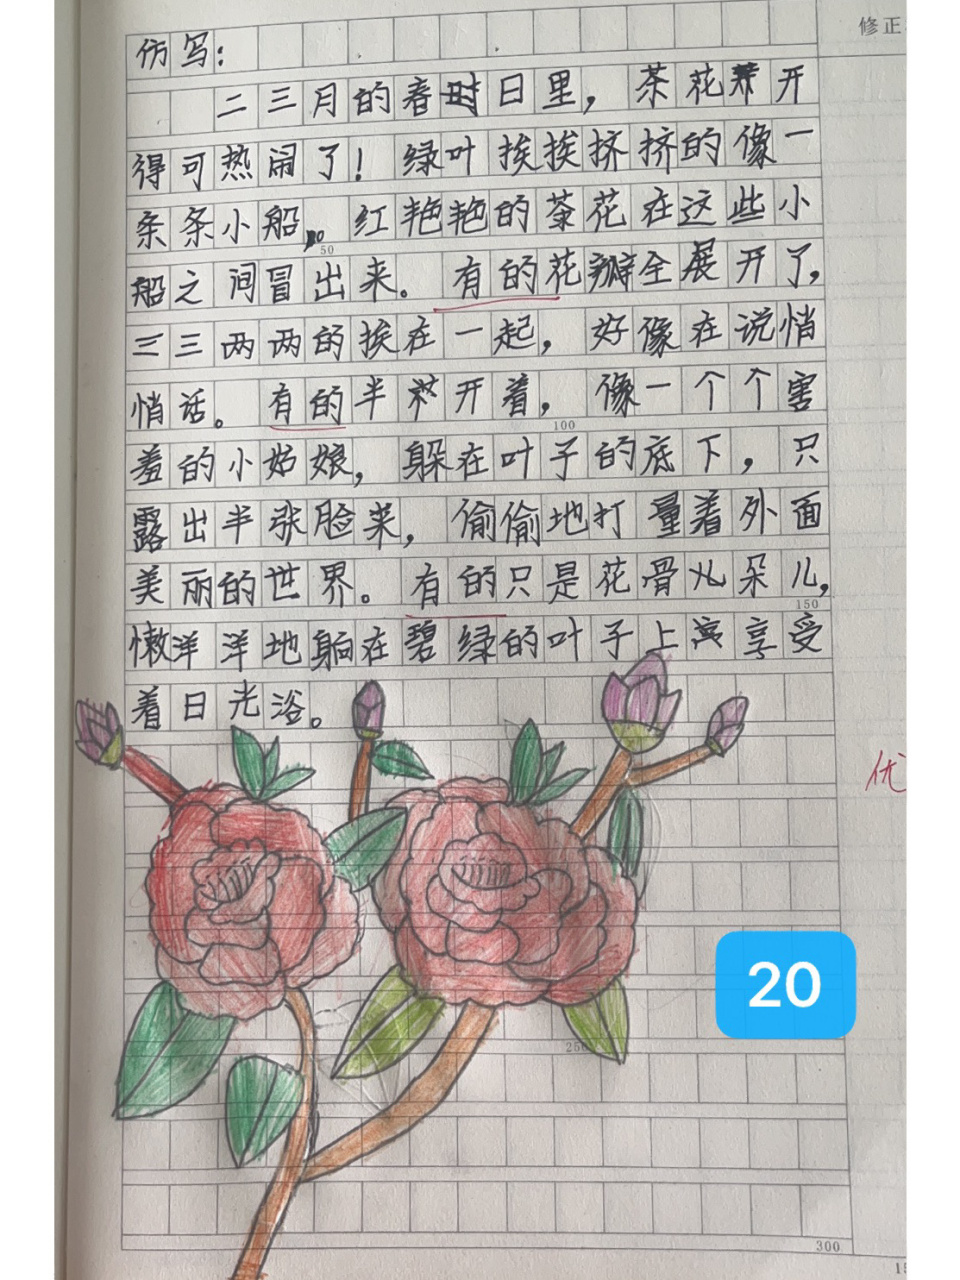 修正
仿写：
二三月的春日里，茶花开
得可热闹了！绿叶挨挨挤挤的像一
条条小船。红艳艳的茶花在这些小
船之间冒出来。有的花瓣全展开了，
三三两两的挨在一起，好像在说悄
悄话。有的半开着，像一个个害
羞的小姑娘，躲在叶子的底下，只
露出半张脸来，偷偷地打量着外面
美丽的世界。有的只是花骨朵儿，
懒洋洋地躺在碧绿的叶子上享受
着日光浴。
50
100
150
优
20
250
300